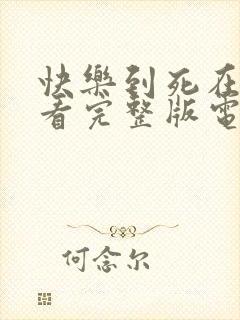 快樂到死在
看完整版電
何念尔